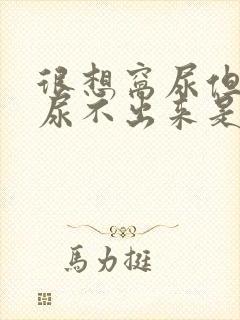 很想窝尿但
尿不出来是
馬力挺